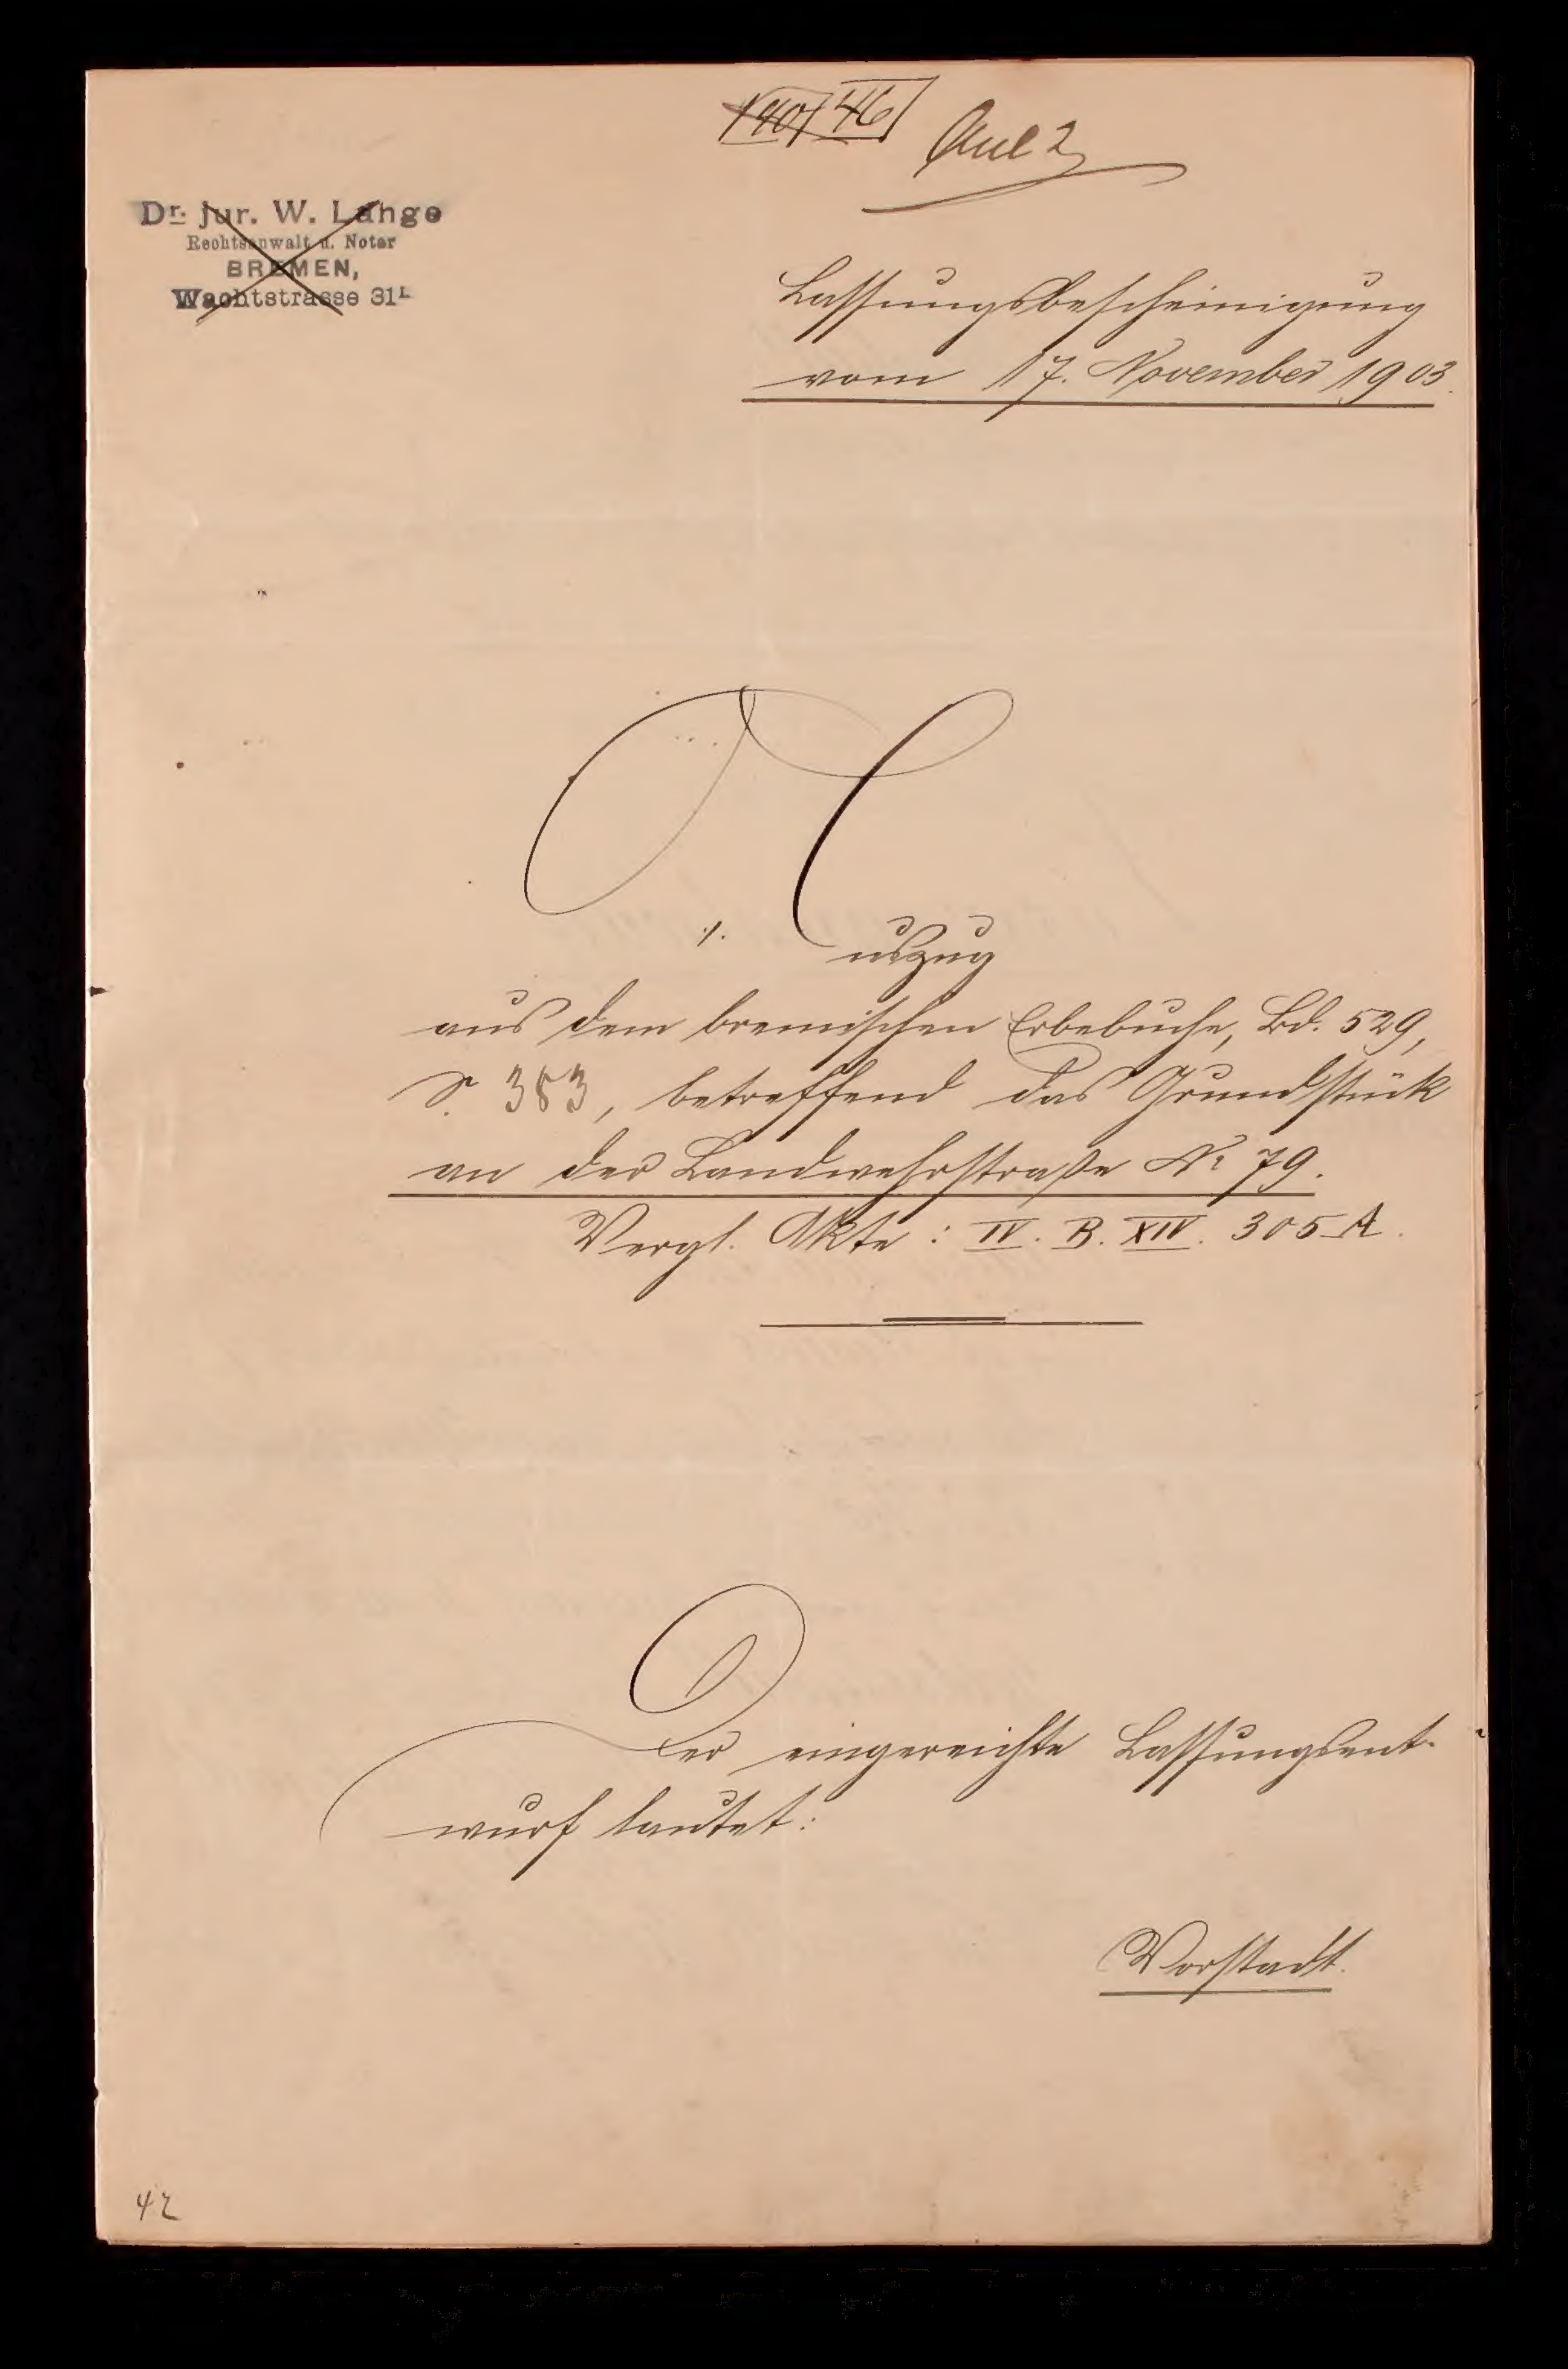 140 46
Anl 2
Dr. jur. W. Lange
Rechtsanwalt u. Notar
BREMEN,
Wachtstrasse 31 I.
Lassungsbescheinigung
vom 17. November 1903.
Auszug
aus dem bremischen Erbebuche, Bd. 529,
S. 383, betreffend das Grundstück
an der Landwehrstraße № 79.
Vergl. Akte: IV. B. XIV. 305 A.
Der eingereichte Lassungsent-
wurf lautet:
Vorstadt.
42